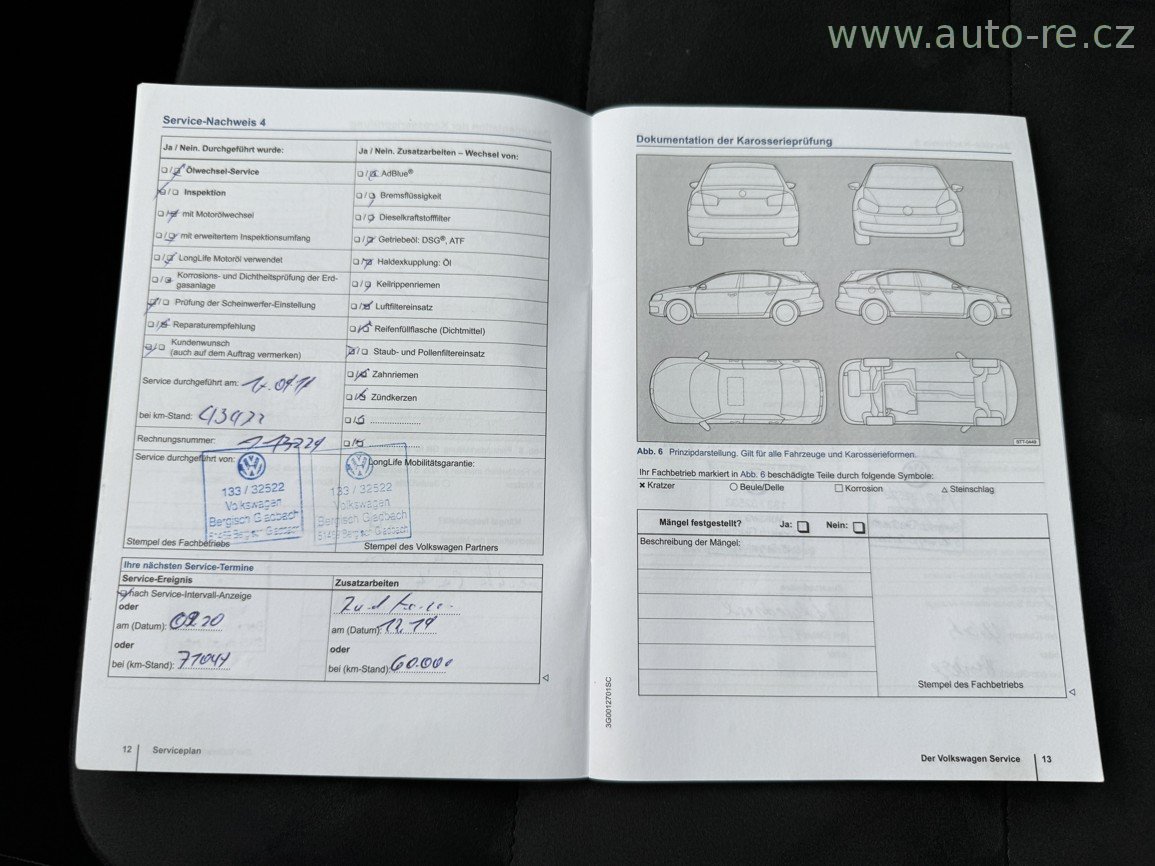 www.auto-re.cz
Service-Nachweis 4
Ja / Nein. Durchgeführt wurde:
Ja / Nein. Zusatzarbeiten – Wechsel von:
Ölwechsel-Service
AdBlue®
Inspektion
Bremsflüssigkeit
mit Motorölwechsel
Dieselkraftstofffilter
mit erweitertem Inspektionsumfang
Getriebeöl: DSG®, ATF
LongLife Motoröl verwendet
Haldexkupplung: Öl
Korrosions- und Dichtheitsprüfung der Erd-
gasanlage
Keilrippenriemen
Prüfung der Scheinwerfer-Einstellung
Luftfiltereinsatz
Reparaturempfehlung
Reifenfüllflasche (Dichtmittel)
Kundenwunsch
(auch auf dem Auftrag vermerken)
Staub- und Pollenfiltereinsatz
Zahnriemen
Zündkerzen
Service durchgeführt am:
bei km-Stand:
Rechnungsnummer:
Service durchgeführt von:
LongLife Mobilitätsgarantie:
133 / 32522
Volkswagen
Bergisch Gladbach
51469 Bergisch Gladbach
133 / 32522
Volkswagen
Bergisch Gladbach
51469 Bergisch Gladbach
Stempel des Fachbetriebs
Stempel des Volkswagen Partners
Ihre nächsten Service-Termine
Service-Ereignis
Zusatzarbeiten
nach Service-Intervall-Anzeige
oder
am (Datum): 09.20
am (Datum): 12.19
oder
oder
bei (km-Stand): 71047
bei (km-Stand): 60.000
12 Serviceplan
Dokumentation der Karosserieprüfung
BTT-0449
Abb. 6 Prinzipdarstellung. Gilt für alle Fahrzeuge und Karosserieformen.
Ihr Fachbetrieb markiert in Abb. 6 beschädigte Teile durch folgende Symbole:
Kratzer
Beule/Delle
Korrosion
Steinschlag
Mängel festgestellt? Ja: Nein:
Beschreibung der Mängel:
Stempel des Fachbetriebs
3G0012701SC
Der Volkswagen Service 13